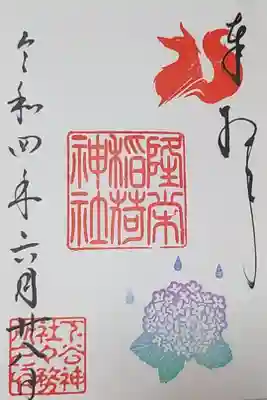 奉拝
隆栄
稲荷
神社
令和四年六月廿八日
下谷神
社々務